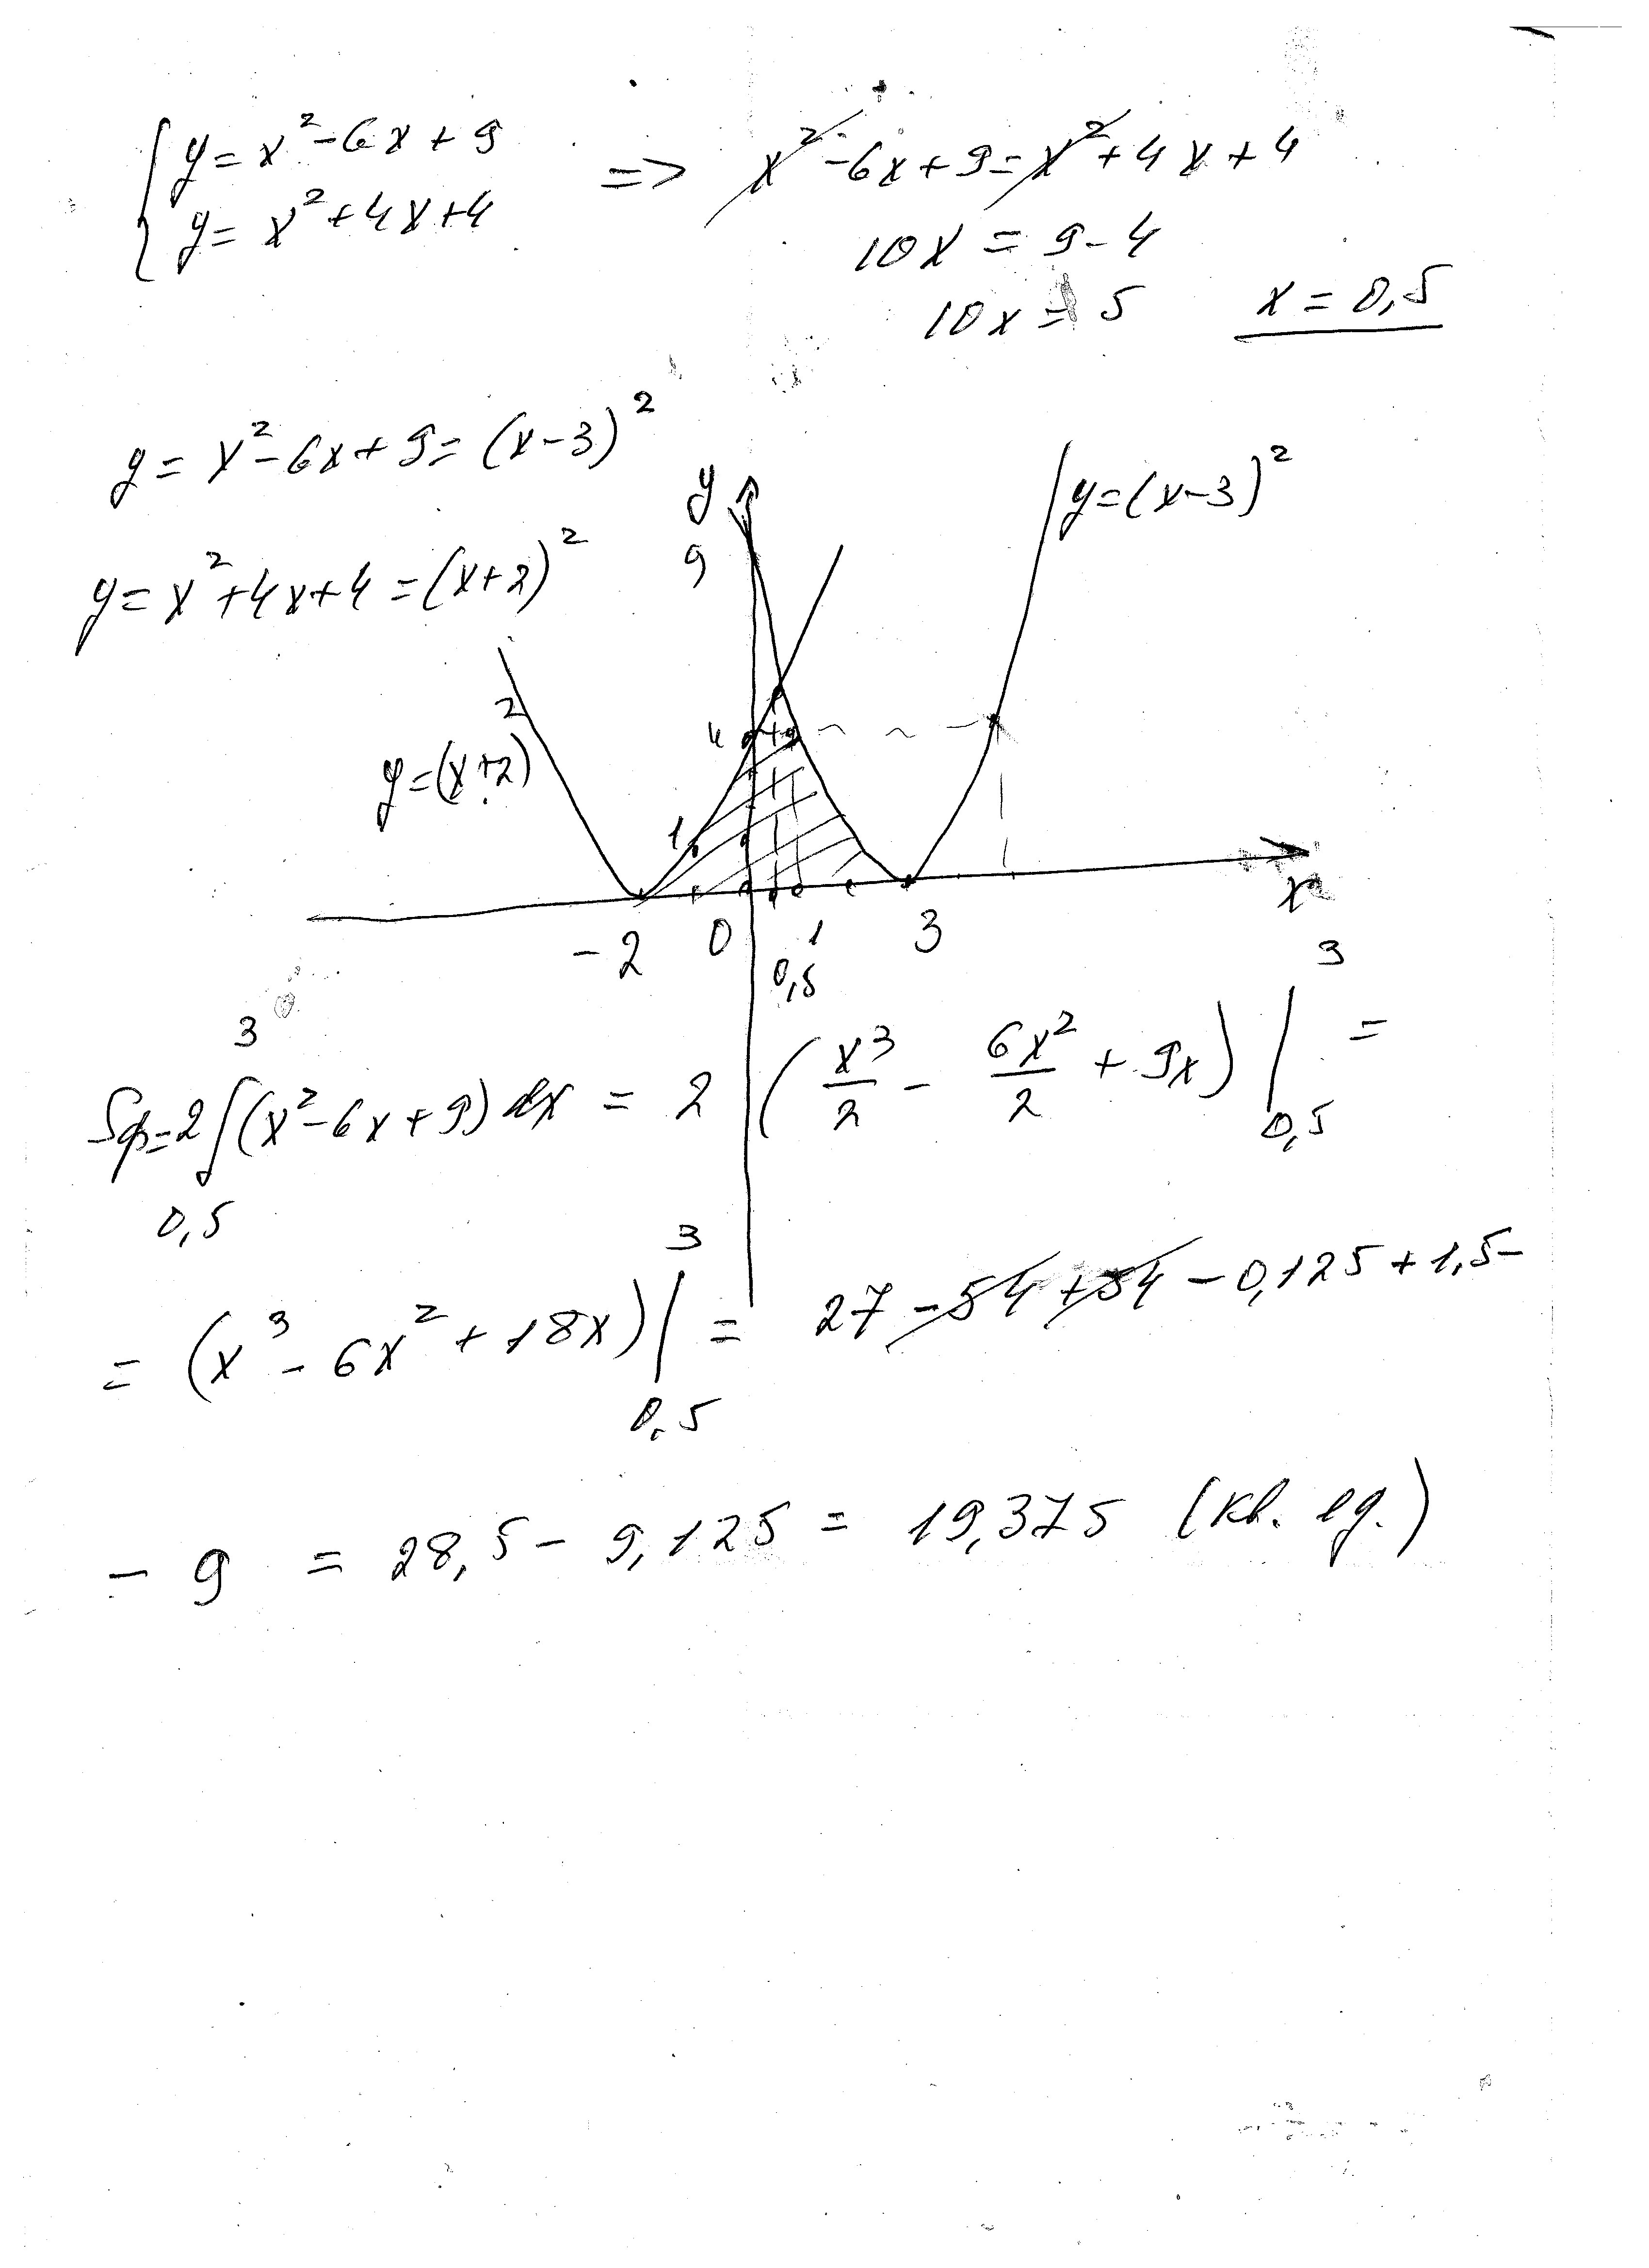 { y = x² - 6x + 9
y = x² + 4x + 4 => x² - 6x + 9 = x² + 4x + 4
10x = 9 - 4
10x = 5 x = 0,5
y = x² - 6x + 9 = (x - 3)²
y = x² + 4x + 4 = (x + 2)²
y
9
y = (x - 3)²
y = (x + 2)²
4
1
-2 0 1 3 x
0,5
Sф = 2 ∫_{0,5}^{3} (x² - 6x + 9) dx = 2 (x³/2 - 6x²/2 + 9x) |_{0,5}^{3} =
= (x³ - 6x² + 18x) |_{0,5}^{3} = 27 - 54 + 54 - 0,125 + 1,5 -
- 9 = 28,5 - 9,125 = 19,375 (кв. ед.)